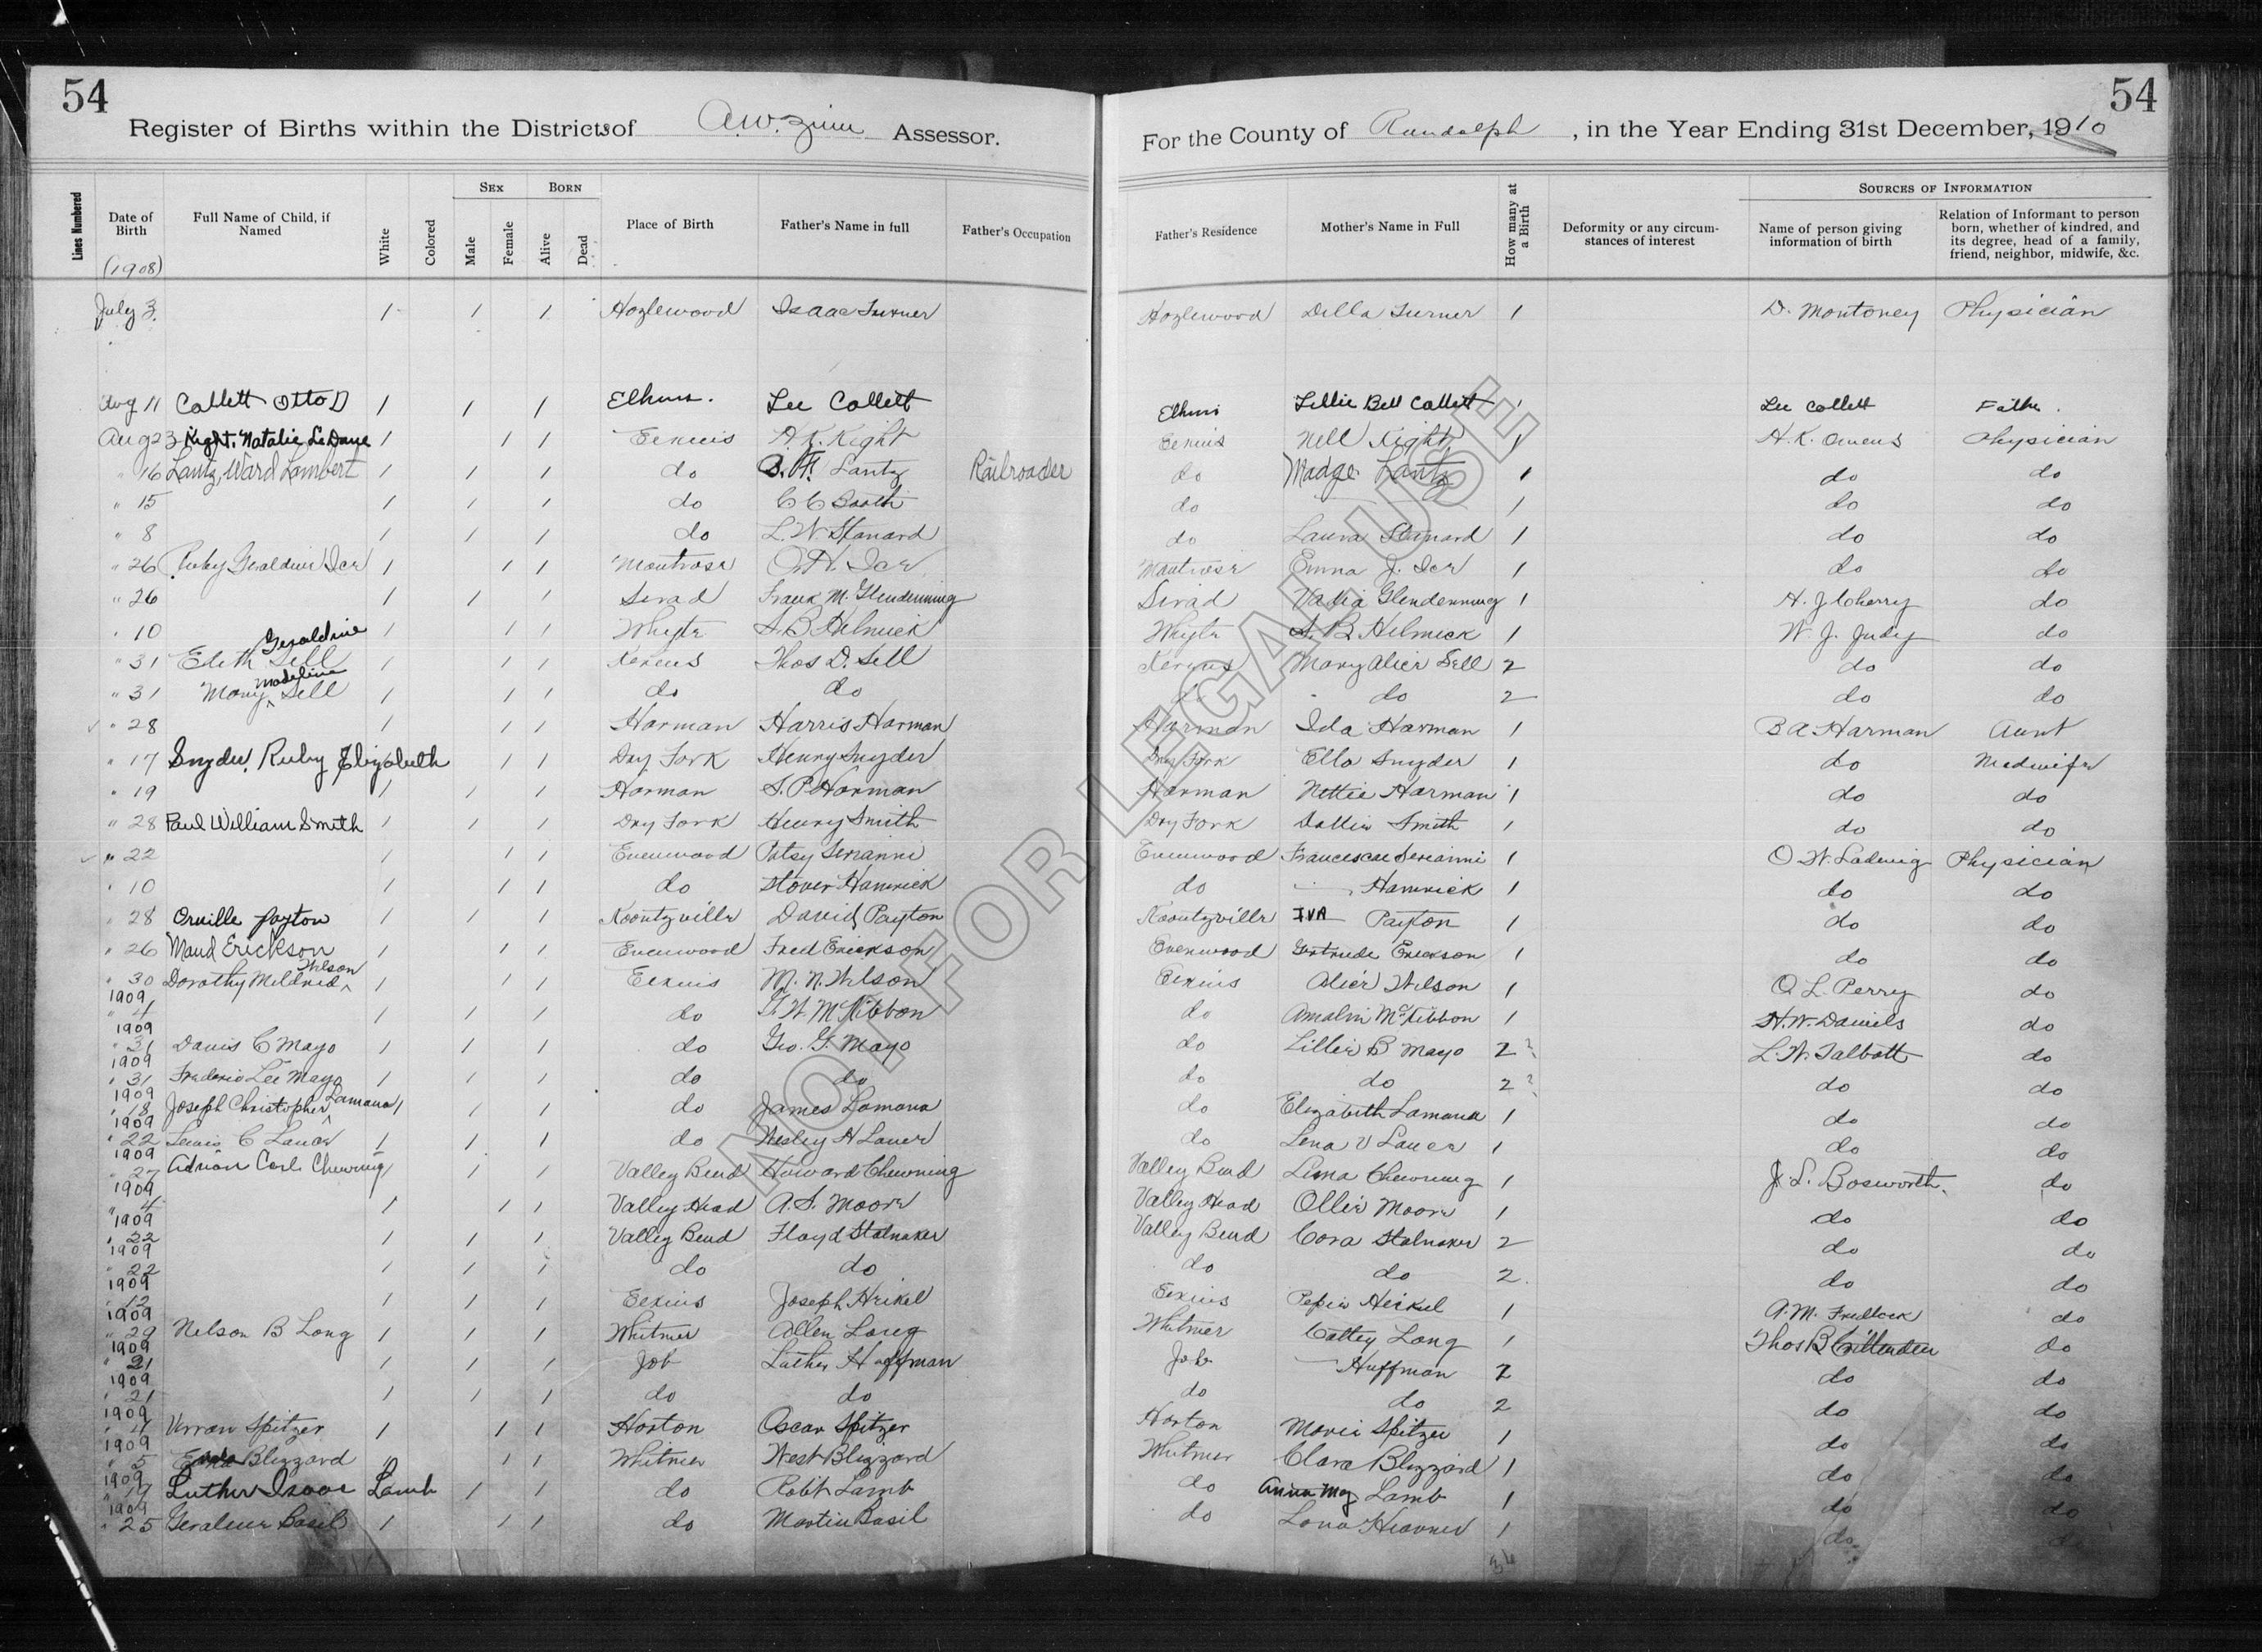 54
54
Register of Births within the Districts of A.W. Zinn Assessor.
For the County of Randolph, in the Year Ending 31st December, 1910
Lines Numbered
Date of Birth
Full Name of Child, if Named
White
Colored
Sex
Male
Female
Born
Alive
Dead
Place of Birth
Father's Name in full
Father's Occupation
Father's Residence
Mother's Name in Full
How many at a Birth
Deformity or any circumstances of interest
Sources of Information
Name of person giving information of birth
Relation of Informant to person born, whether of kindred, and its degree, head of a family, friend, neighbor, midwife, &c.
(1908)
July 3 1 1 1 Hazlewood Isaac Turner Hazlewood Della Turner 1 D. Montoney Physician
Aug 11 Collett Otto D 1 1 1 Elkins. Lee Collett Elkins Lillie Bell Collett Lee Collett Father.
Aug 23 Kight, Natalie 1 1 1 Elkins A. K. Kight Elkins Nell Kight 1 H.K. Owens Physician
" 16 Lantz, Ward Lambert 1 1 1 do Lantz Railroader do Madge Lantz 1 do do
" 15 1 1 1 do C C do 1 do do
" 8 1 1 1 do L. W. Stanard do Laura Stanard 1 do do
" 26 Ruby Geraldine Ice 1 1 1 Montrose Ice Montrose Emma J. Ice 1 do do
" 26 1 1 1 Frank M. Glendenning Glendenning 1 H. J Cherry do
" 10 1 1 1 Whyte S. B Helmick Whyte S. B. Helmick 1 W. J. Judy do
" 31 Edith Geraldine Sell 1 1 1 Kerens Thos D. Sell Kerens Mary Alice Sell 2 do do
" 31 Mary Madeline Sell 1 1 1 do do do do 2 do do
" 28 1 1 1 Harman Harris Harman Harman Ida Harman 1 B A Harman Aunt
" 17 Snyder, Ruby Elizabeth 1 1 Dry Fork Henry Snyder Dry Fork Ella Snyder 1 do Midwife
" 19 1 1 1 Harman S. P Harman Harman Nettie Harman 1 do do
" 28 Paul William Smith 1 1 1 Dry Fork Henry Smith Dry Fork Dollie Smith 1 do do
" 22 1 1 1 Evenwood Patsy Serianni Evenwood Serianni 1 O W. Ladwig Physician
" 10 1 1 1 do Stover Hamrick do Hamrick 1 do do
" 28 Orville Payton 1 1 1 Koontzville David Payton Koontzville IVA Payton 1 do do
" 26 Maud Erickson 1 1 1 Evenwood Fred Erickson Evenwood Gertrude Erickson 1 do do
" 30 Dorothy Mildred Wilson 1 1 1 Elkins M. N. Wilson Elkins Alice Wilson 1 O. L. Perry do
1909 " 4 1 1 1 do McKibbon do McKibbon 1 H.W. Daniels do
1909 " 31 Davis C Mayo 1 1 1 do Geo. G. Mayo do Lillie B Mayo 2 ? L. W. Talbott do
1909 " 31 Frederic Lee Mayo 1 1 1 do do do do 2 ? do do
1909 " 18 Joseph Christopher Lamana 1 1 1 do James Lamana do Elizabeth Lamana 1 do do
1909 " 22 Lewis C Lauer 1 1 1 do Wesley H Lauer do Lena V Lauer 1 do do
1909 " 27 Adrian Carl Chewning 1 1 1 Valley Bend Howard Chewning Valley Bend Lena Chewning 1 J. L. Bosworth. do
1909 " 4 1 1 1 Valley Head A. S. Moore Valley Head Ollie Moore 1 do do
1909 " 22 1 1 1 Valley Bend Floyd Stalnaker Valley Bend Cora Stalnaker 2 do do
1909 " 22 1 1 1 do do do do 2 do do
1909 " 12 1 1 1 Elkins Joseph Heikel Elkins Heikel 1 A. M. Fredlock do
1909 " 29 Nelson B Long 1 1 1 Whitmer Allen Long Whitmer Long 1 Thos B Crittenden do
1909 " 21 1 1 1 Job Luther Huffman Job Huffman 2 do do
1909 " 21 1 1 1 do do do do 2 do do
1909 " 4 Spitzer 1 1 1 Horton Oscar Spitzer Horton Spitzer 1 do do
1909 " 5 Blizzard 1 1 1 Whitmer West Blizzard Whitmer Clara Blizzard 1 do do
1909 " 19 Luther Isaac Lamb 1 1 do Robt Lamb do Anna May Lamb 1 do do
1909 " 25 Basil 1 1 1 do Martin Basil do 1 do do
NOT FOR LEGAL USE